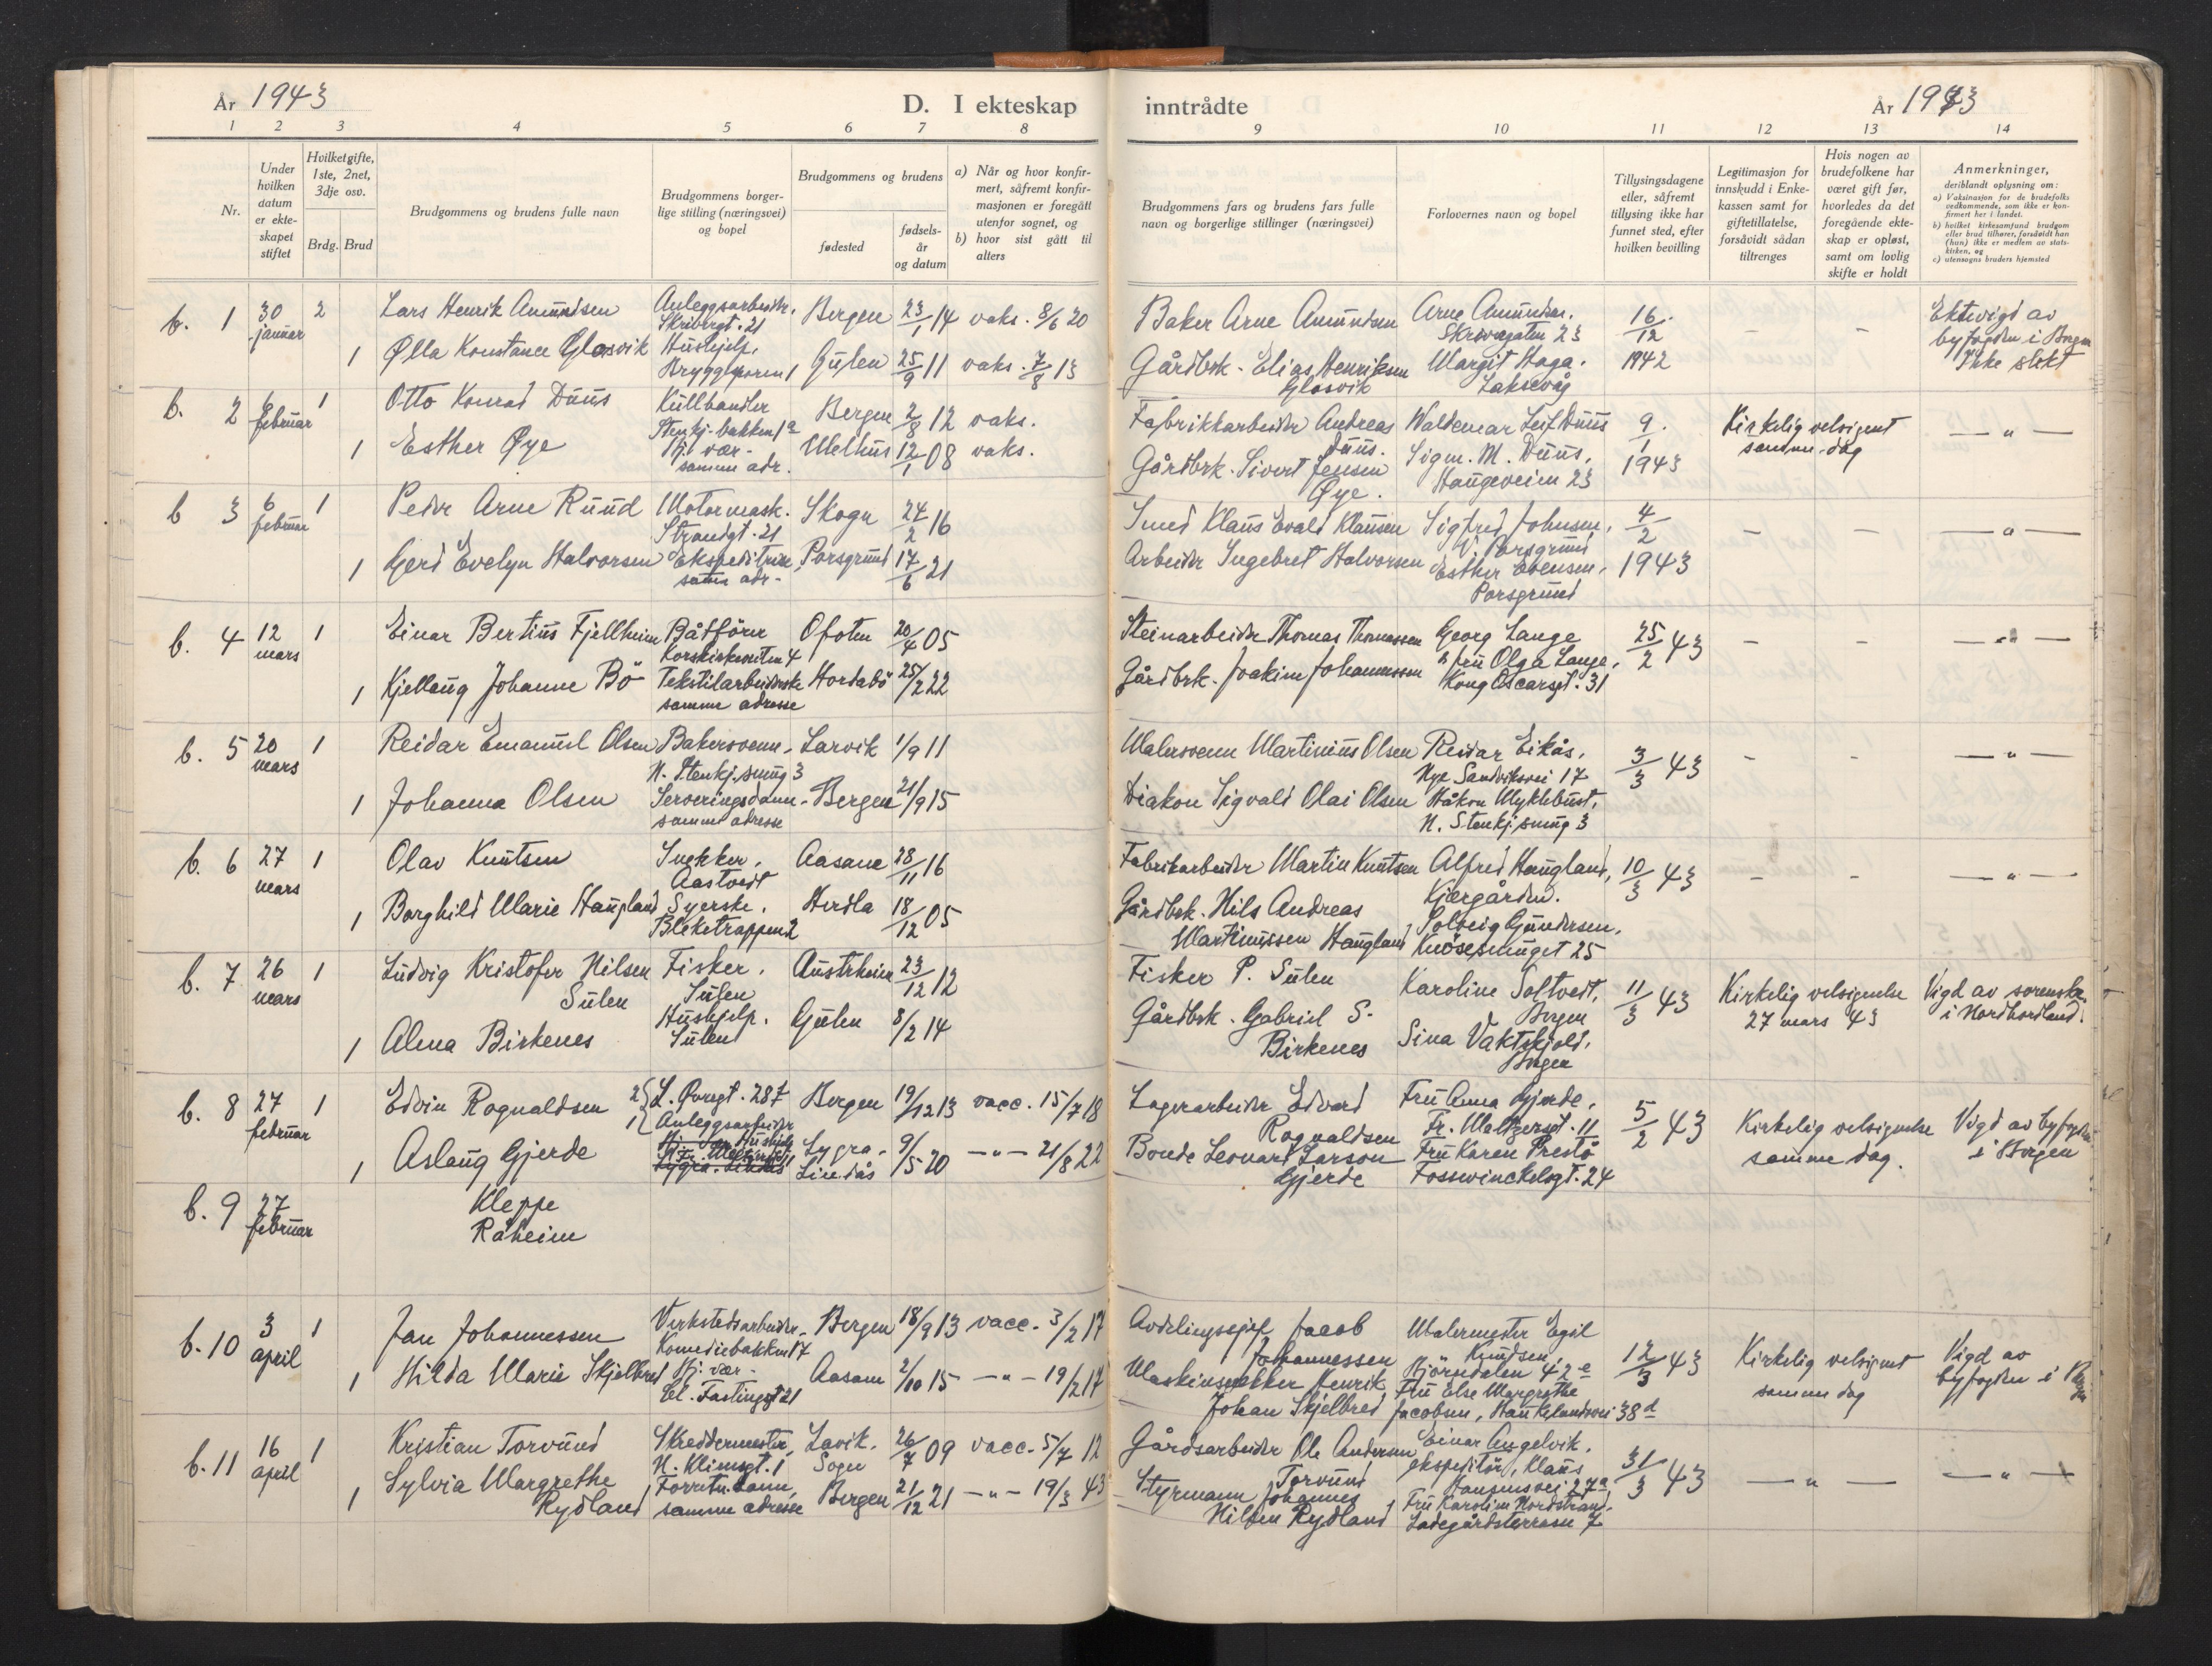 År 1943
D. I ekteskap
1 2 3 4 5 6 7 8
Nr.
Under hvilken datum er ekteskapet stiftet
Hvilket gifte, 1ste, 2net, 3dje osv.
Brdg. Brud
Brudgommens og brudens fulle navn
Brudgommens borgerlige stilling (næringsvei) og bopel
Brudgommens og brudens
fødested
fødselsår og datum
a) Når og hvor konfirmert, såfremt konfirmasjonen er foregått utenfor sognet, og
b) hvor sist gått til alters
b. 1 30 januar 2 Lars Henrik Amundsen Anleggsarbeider. Skrivergt. 21 Bergen 23/1 14 vaks. 8/6 20
1 Ølla Konstance Glosvik Hushjelp. Gulen 25/9 11 vaks. 7/8 13
b. 2 6 februar 1 Otto Konrad Duus Kullhandler Stenkj. bakken 1a Bergen 2/8 12 vaks.
1 Esther Øye Hj. vær. samme adr. Melhus 12/1 08 vaks.
b 3 6 februar 1 Peder Arne Ruud Motormask. Strandgt. 21 Skogn 24/2 16
1 Gerd Evelyn Halvorsen Ekspeditrise, samme adr. Porsgrund 17/6 21
b. 4 12 mars 1 Einar Bertius Fjellheim Båtförer Korskirkeveiten 4 Ofoten 20/4 05
1 Kjellaug Johanne Bö Tekstilarbeiderske samme adresse Hordabö 25/2 22
b. 5 20 mars 1 Reidar Emanuel Olsen Bakersvenn, N. Stenkj. smug 3 Larvik 1/9 11
1 Johanna Olsen Serveringsdame samme adresse Bergen 21/9 15
b. 6 27 mars 1 Olav Knutsen Snekker. Aastvedt Aasane 28/11 16
1 Borghild Marie Haugland Syerske. Bleketrappen 2 Herdla 18/12 05
b. 7 26 mars 1 Ludvig Kristofer Nilsen Sulen Fisker. Sulen Austrheim 23/12 12
1 Alma Birkenes Hushjelp. Sulen Gulen 8/2 14
b. 8 27 februar 1 Edvin Rognaldsen 2{ L. Øvregt. 287 1{ Anleggsarbeider Bergen 19/12 13 vacc. 15/7 18
1 Aslaug Gjerde Lygra - Lindås 9/5 20 — " — 21/8 22
b. 9 27 februar Kleppe
Råheim
b. 10 3 april 1 Jan Johannessen Verkstedsarbeider Komediebakken 17 Bergen 18/9 13 vacc. 3/2 17
1 Hilda Marie Skjelbred Hj. vær. Cl. Fastingsgt 21 Aasane 2/10 15 — " — 19/2 17
b. 11 16 april 1 Kristian Torvund Skreddermester, N. Klimsgt. 1 Lavik. Sogn 26/7 09 vacc. 5/7 12
1 Sylvia Margrethe Rydland Forretn. dame, samme adresse Bergen 21/12 21 — " — 19/3 43
inntrådte
År 1943
9 10 11 12 13 14
Brudgommens fars og brudens fars fulle navn og borgerlige stillinger (næringsvei)
Forlovernes navn og bopel
Tillysingsdagene eller, såfremt tillysing ikke har funnet sted, efter hvilken bevilling
Legitimasjon for innskudd i Enkekassen samt for giftetillatelse, forsåvidt sådan tiltrenges
Hvis nogen av brudefolkene har været gift før, hvorledes da det foregående ekteskap er opløst, samt om lovlig skifte er holdt
Anmerkninger,
deriblandt oplysning om:
a) Vaksinasjon for de brudefolks vedkommende, som ikke er konfirmert her i landet.
b) hvilket kirkesamfund brudgom eller brud tilhører, forsåvidt han (hun) ikke er medlem av statskirken, og
c) utensogns bruders hjemsted
Baker Arne Amundsen Arne Amundsen. Skrivergaten 23 16/12 1942 - - Ektevigd av byfogden i Bergen Ikke slekt
Gårdbrk. Elias Henriksen Glosvik Margit Haga. Laksevåg
Fabrikkarbeider Andreas Duus. Waldemar Leif Duus 9/1 1943 Kirkelig velsignet samme dag — " —
Gårdbrk. Sivert Jensen Øye. Sigm. M. Duus, Haugeveien 23
Smed Klaus Evald Klausen Sigfred Johnsen, V. Porsgrund 4/2 1943 - - — " —
Arbeider Ingebret Halvorsen Esther Evensen, Porsgrund
Steinarbeider Thomas Thomassen Georg Lange 25/2 43 - - — " —
Gårdbrk. Joakim Johannessen & fru Olga Lange, Kong Oscarsgt. 31
Malersvenn Martinius Olsen Reidar Eikås, Nye Sandviksvei 17 3/3 43 - - — " —
Diakon Sigvald Olai Olsen Håkon Myklebust, N. Stenkj. smug 3
Fabrikarbeider Martin Knutsen Alfred Haugland, Kjærgården. 10/3 43 - - — " —
Gårdbrk. Nils Andreas Martinussen Haugland Solveig Gundersen, Knösesmuget 25
Fisker P. Sulen Karoline Softvedt, Bergen 11/3 43 Kirkelig velsignelse 27 mars 43 Vigd av sorenskr. i Nordhordland.
Gårdbrk. Gabriel S. Birkenes Sina Vaktskjold, Bergen
Lagerarbeider Edvard Rognaldsen Fru Anna Gjerde, Fr. Meltzersgt. 11 5/2 43 Kirkelig velsignelse samme dag. Vigd av byfogden i Bergen
Bonde Leonard Larson Gjerde Fru Karen Prestö Fosswinckelsgt. 24
Avdelingssjef Jacob Johannessen Malermester Egil Knudsen, Björndalen 42e 12/3 43 Kirkelig velsignet samme dag Vigd av byfogden i Bergen
Maskinsnekker Henrik Johan Skjelbred Fru Else Margrethe Jacobsen, Haukelandsvei 38d
Gårdsarbeider Ole Andersen Torvund Einar Angelvik. ekspeditör, Klaus Hansensvei 27a 31/3 43 — " — — " —
Styrmann Johannes Nilsen Rydland Fru Karoline Nordstrand, Ladegårdsterrasse 7